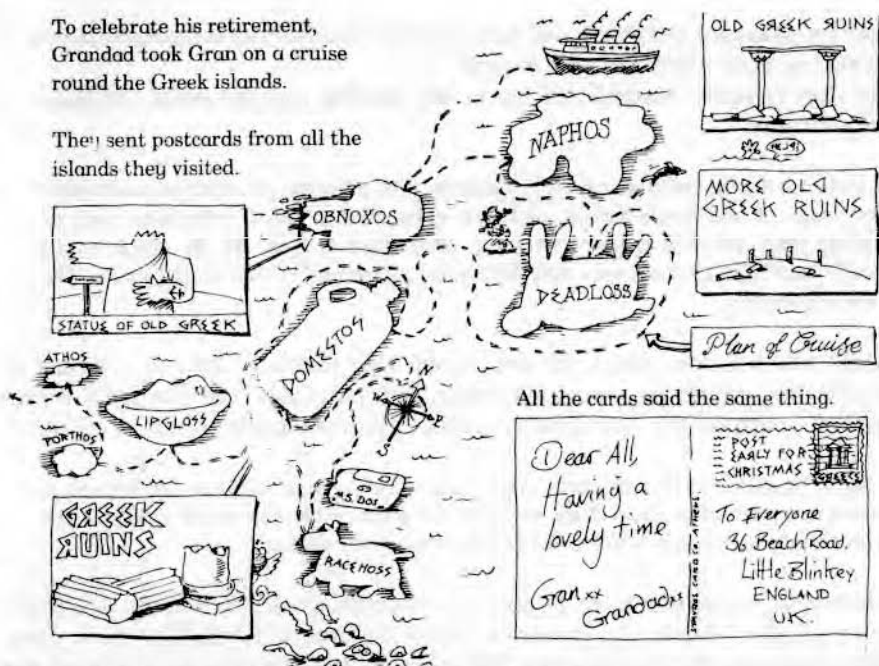 To celebrate his retirement,
Grandad took Gran on a cruise
round the Greek islands.
They sent postcards from all the
islands they visited.
OLD GREEK RUINS
NAPHOS
OBNOXOS
MORE OLD
GREEK RUINS
STATUE OF OLD GREEK
DEADLOSS
Plan of Cruise
DOMESTOS
ATHOS
LIPGLOSS
PORTHOS
N
W
S
M.S. DOS
RACEHOSS
GREEK
RUINS
All the cards said the same thing.
Dear All,
Having a
lovely time
Gran xx
Grandad xx
STAVROS CARD CO. ATHENS
POST
EARLY FOR
CHRISTMAS
GREECE
To Everyone
36 Beach Road,
Little Blinkey
ENGLAND
UK.